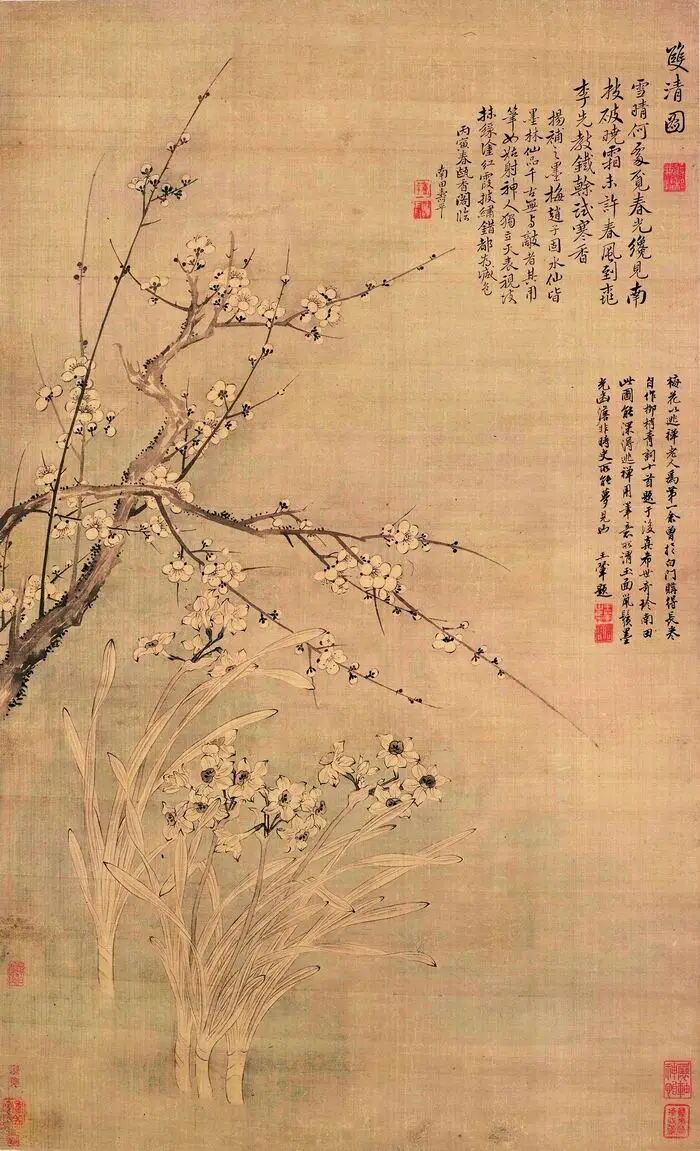 雙清圖
雪晴何處覓春光纔見南
枝破曉霜未許春風到桃
李先教鐵榦試寒香
揚補之墨梅趙子固水仙皆
墨林仙品千古無與敵者其用
筆如姑射神人獨立天表視彼
抹綠塗紅霞披繡錯都為減色
丙寅春甌香閣臨
南田壽平
梅花以逃禪老人為第一余曾於白門購得長卷
自作柳梢青詞十首題于後真希世奇珍南田
此圖能深得逃禪用筆意所謂玉面鼠鬚墨
光幽澹非時史所能夢見也 王翬題